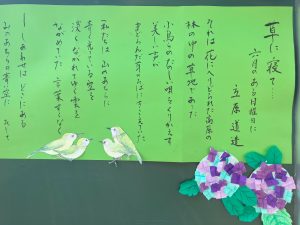 草に寝て…
六月のある日曜日に
立原道造
それは花にへりどられた高原の
林のなかの草地であった
小鳥らのたのしい唄をくりかへす
美しい声が
まどろんだ耳のそばにきこえてゐた
私たちは 山のあちらに
青く光ってゐる空を
淡く ながれてゆく雲を
ながめてゐた 言葉すくなく
―しあわせはどこにある
山のあちらの青い空に